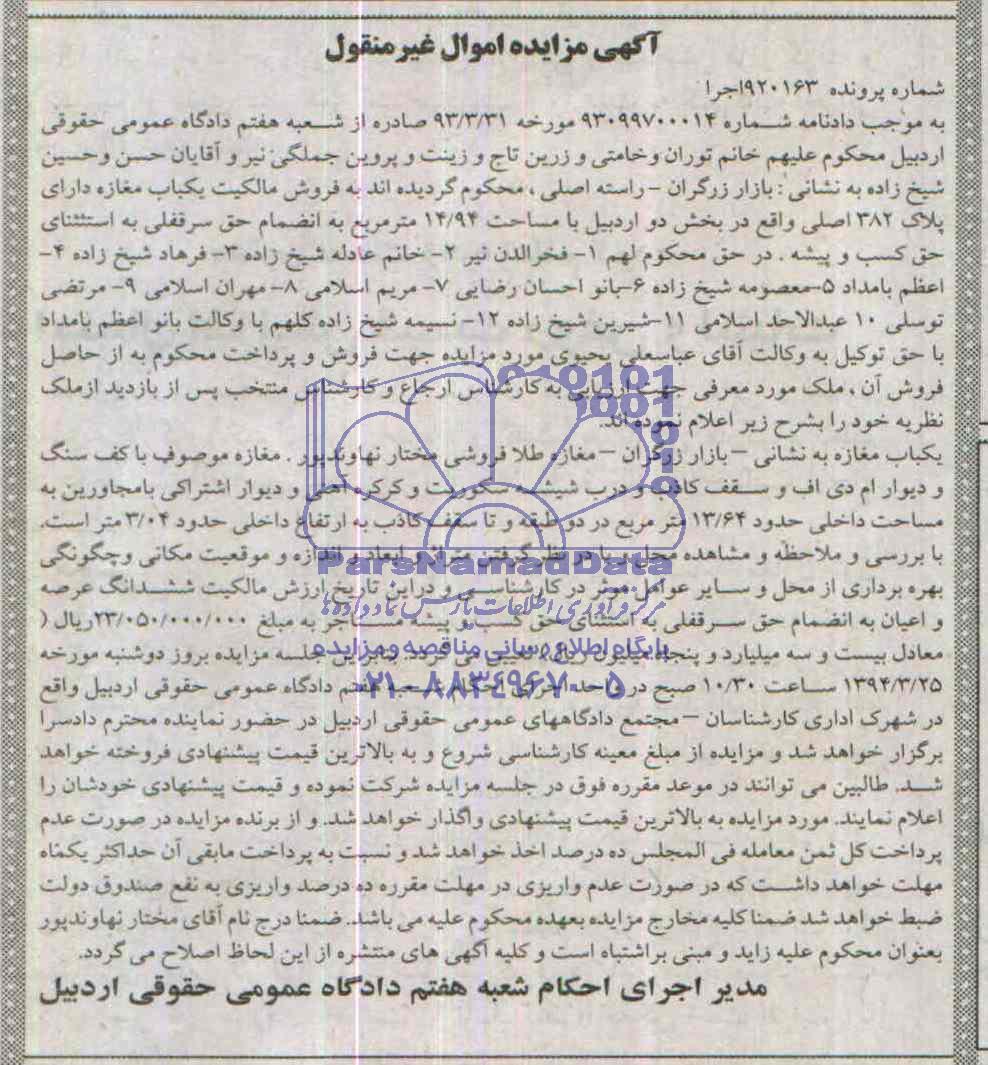 آگهی مزایده اموال غیرمنقول
شماره پرونده ۹۲۰۱۶۳اجرا
به موجب دادنامه شماره ۹۳۰۹۹۷۰۰۰۱۴ مورخه ۹۳/۳/۳۱ صادره از شعبه هفتم دادگاه عمومی حقوقی
اردبیل محکوم علیهم خانم توران وخامتی و زرین تاج و زینت و پروین جملگی نیر و آقایان حسن وحسین
شیخ زاده به نشانی : بازار زرگران - راسته اصلی ، محکوم گردیده اند به فروش مالکیت یکباب مغازه دارای
پلاک ۳۸۲ اصلی واقع در بخش دو اردبیل با مساحت ۱۴/۹۴ مترمربع به انضمام حق سرقفلی به استثنای
حق کسب و پیشه . در حق محکوم لهم ۱- فخرالدن نیر ۲- خانم عادله شیخ زاده ۳- فرهاد شیخ زاده ۴-
اعظم بامداد ۵-معصومه شیخ زاده ۶-بانو احسان رضایی ۷- مریم اسلامی ۸- مهران اسلامی ۹- مرتضی
توسلی ۱۰ عبدالاحد اسلامی ۱۱-شیرین شیخ زاده ۱۲- نسیمه شیخ زاده کلهم با وکالت بانو اعظم بامداد
با حق توکیل به وکالت آقای عباسعلی یحیوی مورد مزایده جهت فروش و پرداخت محکوم به از حاصل
فروش آن ، ملک مورد معرفی جهت ارزیابی به کارشناس ارجاع و کارشناس منتخب پس از بازدید ازملک
نظریه خود را بشرح زیر اعلام نموده اند.
یکباب مغازه به نشانی - بازار زرگران - مغازه طلا فروشی مختار نهاوندپور . مغازه موصوف با کف سنگ
و دیوار ام دی اف و سقف کاذب و درب شیشه سکوریت و کرکره آهنی و دیوار اشتراکی بامجاورین به
مساحت داخلی حدود ۱۳/۶۴ متر مربع در دو طبقه و تا سقف کاذب به ارتفاع داخلی حدود ۳/۰۴ متر است.
با بررسی و ملاحظه و مشاهده محل و با در نظر گرفتن متراژ و ابعاد و اندازه و موقعیت مکانی وچگونگی
بهره برداری از محل و سایر عوامل موثر در کارشناسی و دراین تاریخ ارزش مالکیت ششدانگ عرصه
و اعیان به انضمام حق سرقفلی به استثنای حق کسب و پیشه مستاجر به مبلغ ۲۳/۰۵۰/۰۰۰/۰۰۰ریال (
معادل بیست و سه میلیارد و پنجاه میلیون ریال) تعیین می گردد. بنابراین جلسه مزایده بروز دوشنبه مورخه
۱۳۹۴/۳/۲۵ ساعت ۱۰/۳۰ صبح در واحد اجرای احکام شعبه هفتم دادگاه عمومی حقوقی اردبیل واقع
در شهرک اداری کارشناسان - مجتمع دادگاههای عمومی حقوقی اردبیل در حضور نماینده محترم دادسرا
برگزار خواهد شد و مزایده از مبلغ معینه کارشناسی شروع و به بالاترین قیمت پیشنهادی فروخته خواهد
شد. طالبین می توانند در موعد مقرره فوق در جلسه مزایده شرکت نموده و قیمت پیشنهادی خودشان را
اعلام نمایند. مورد مزایده به بالاترین قیمت پیشنهادی واگذار خواهد شد. و از برنده مزایده در صورت عدم
پرداخت کل ثمن معامله فی المجلس ده درصد اخذ خواهد شد و نسبت به پرداخت مابقی آن حداکثر یکماه
مهلت خواهد داشت که در صورت عدم واریزی در مهلت مقرره ده درصد واریزی به نفع صندوق دولت
ضبط خواهد شد ضمنا کلیه مخارج مزایده بعهده محکوم علیه می باشد. ضمنا درج نام آقای مختار نهاوندپور
بعنوان محکوم علیه زاید و مبنی براشتباه است و کلیه آگهی های منتشره از این لحاظ اصلاح می گردد.
مدیر اجرای احکام شعبه هفتم دادگاه عمومی حقوقی اردبیل
ParsNamadData
مرکز فرآوری اطلاعات پارس نماد داده ها
پایگاه اطلاع رسانی مناقصه و مزایده
۰۲۱-۸۸۳۴۹۶۷۰-۵